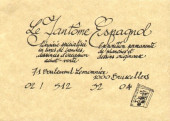 Le Fantome Espagnol
Librairie spécialisée
en livres de bandes
dessinées d'occasion
Exposition permanente
de planches et
dessins originaux
71 Boulevard Lemonnier
1000 Bruxelles
02 / 512 32 04